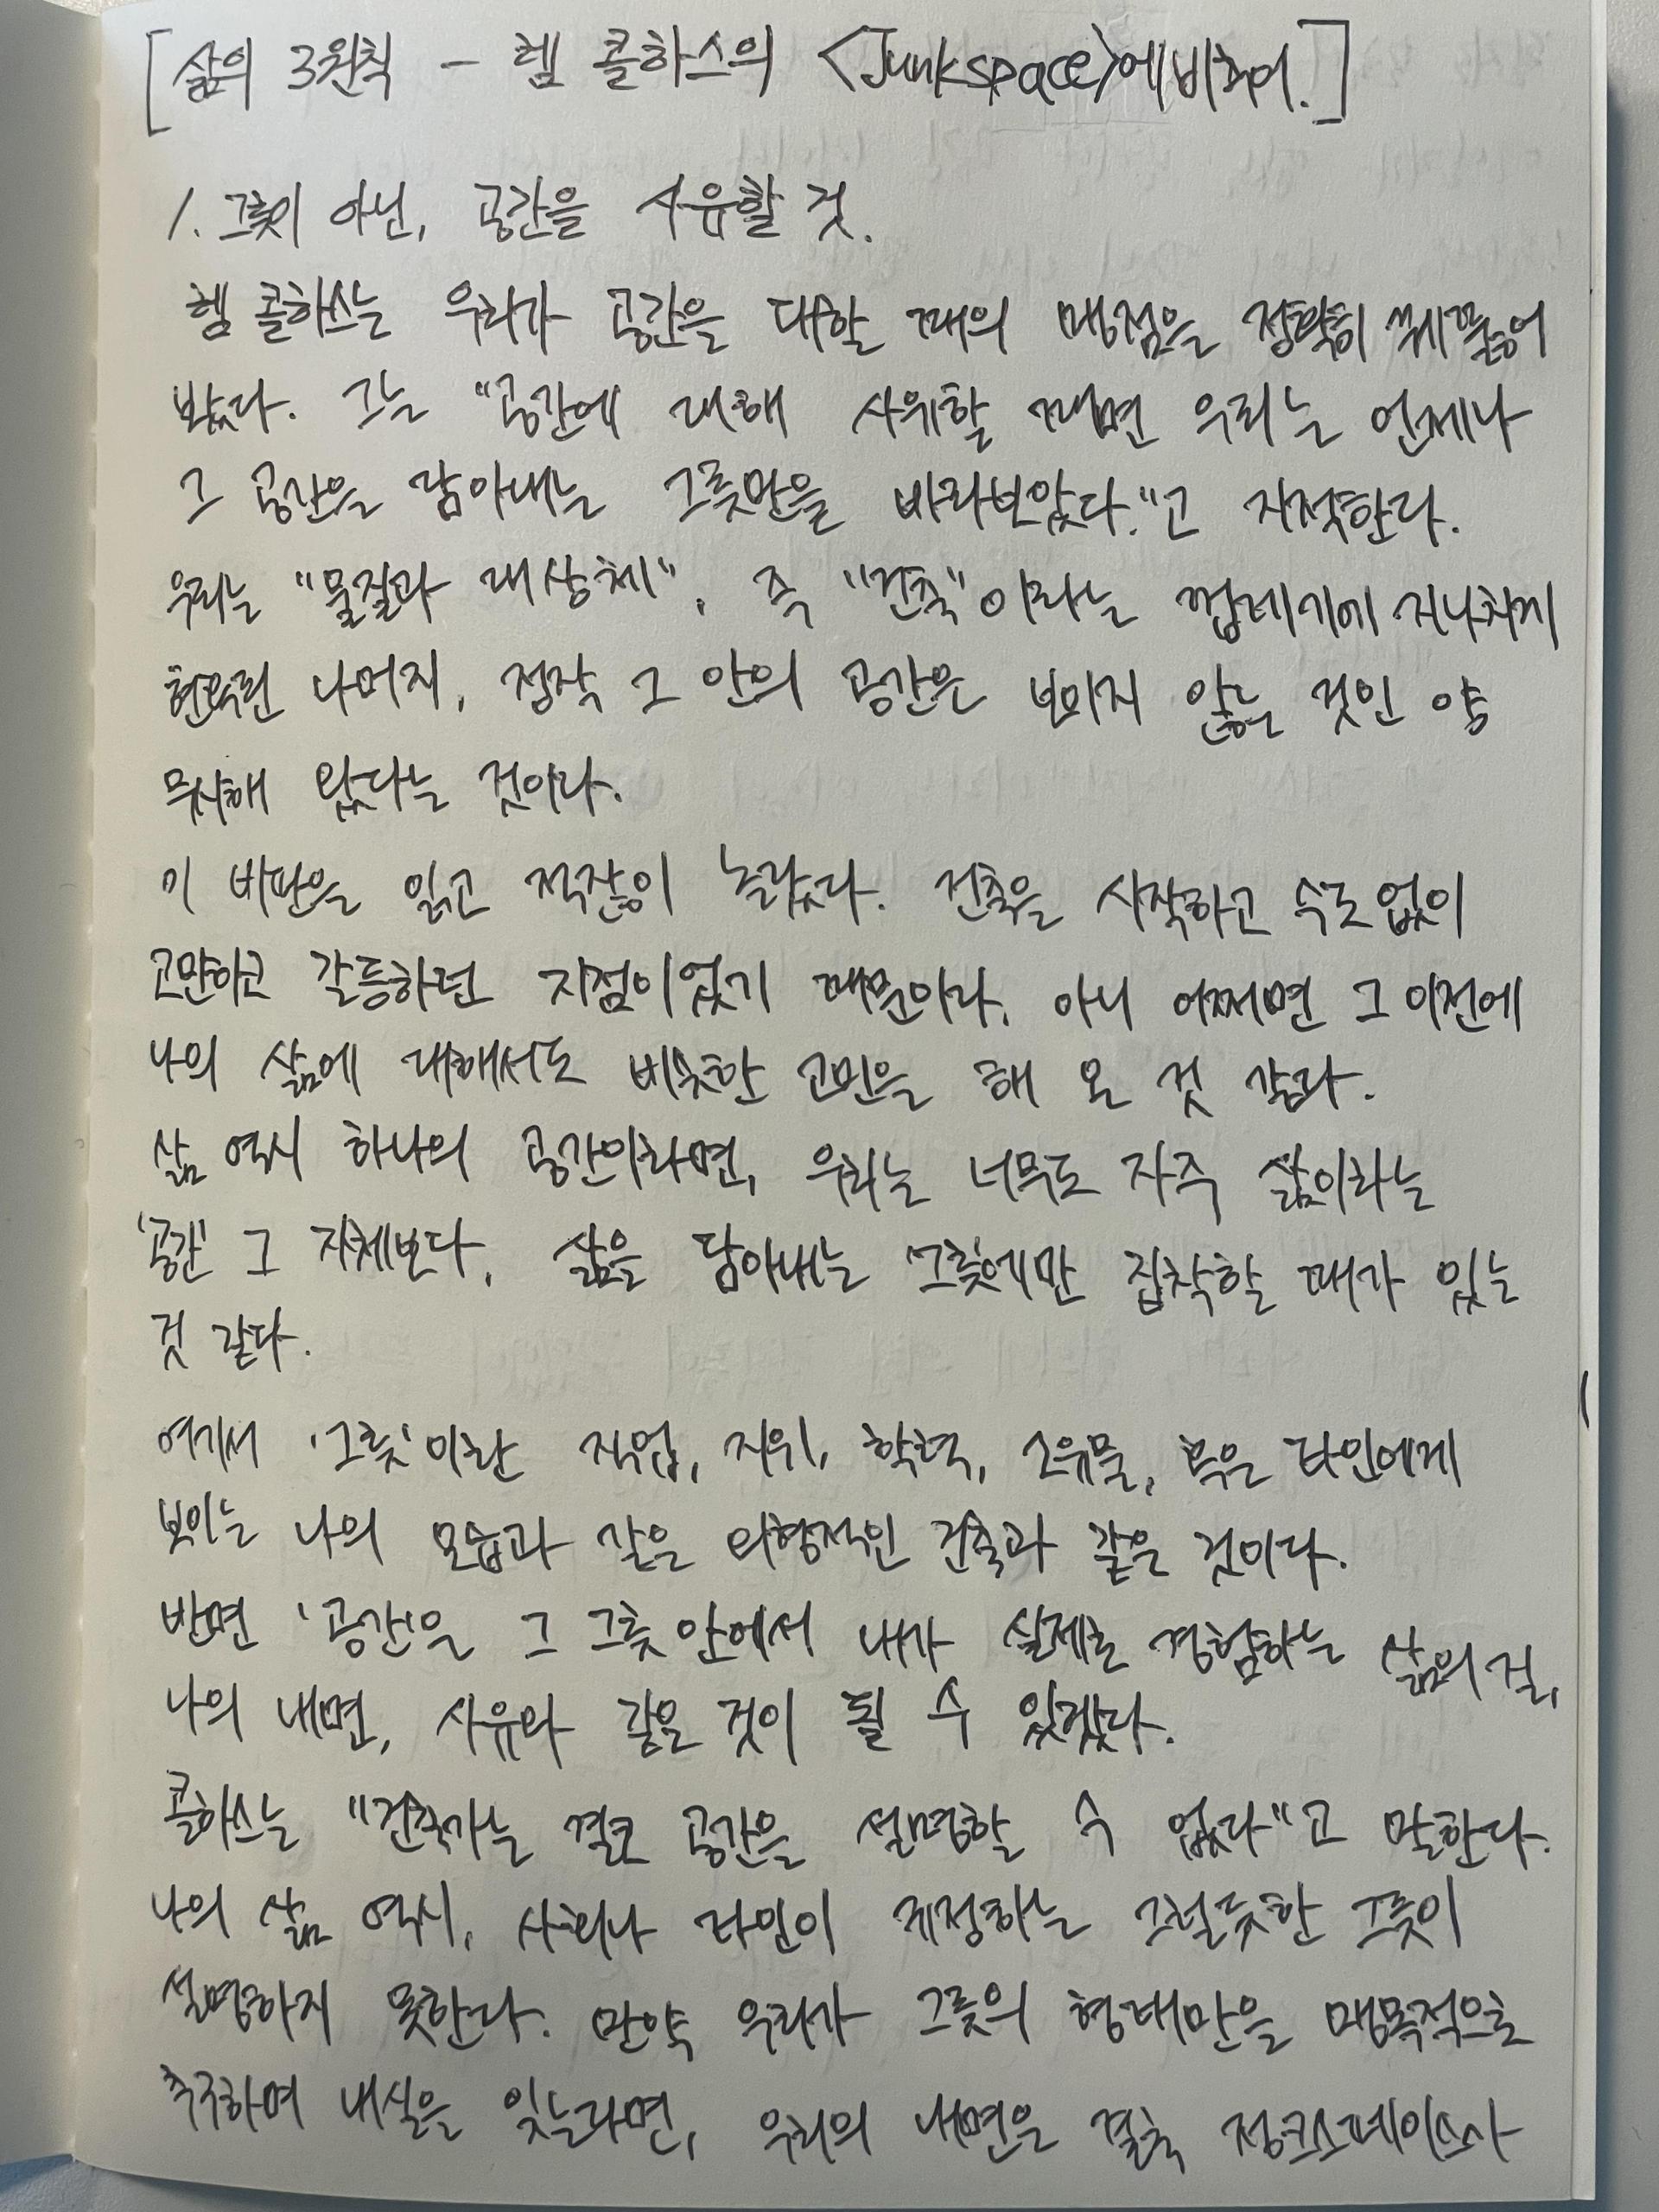 [삶의 3원칙 - 렘 콜하스의 <Junkspace>에 비추어.]
1. 그릇이 아닌, 공간을 사유할 것.
렘 콜하스는 우리가 공간을 대할 때의 맹점을 정확히 꿰뚫어
봤다. 그는 "공간에 대해 사유할 때면 우리는 언제나
그 공간을 담아내는 그릇만을 바라보았다."고 지적한다.
우리는 "물질과 대상체", 즉 "건축"이라는 껍데기에 지나치게
현혹된 나머지, 정작 그 안의 공간은 보이지 않는 것인 양
무시해 왔다는 것이다.
이 비판을 읽고 적잖이 놀랐다. 건축을 시작하고 수도 없이
고민하고 갈등하던 지점이었기 때문이다. 아니 어쩌면 그 이전에
나의 삶에 대해서도 비슷한 고민을 해 온 것 같다.
삶 역시 하나의 공간이라면, 우리는 너무도 자주 삶이라는
'공간' 그 자체보다, 삶을 담아내는 '그릇'에만 집착할 때가 있는
것 같다.
여기서 '그릇'이란 직업, 지위, 학력, 소유물, 혹은 타인에게
보이는 나의 모습과 같은 외형적인 건축과 같은 것이다.
반면 '공간'은 그 그릇 안에서 내가 실제로 경험하는 삶의 질,
나의 내면, 사유와 같은 것이 될 수 있겠다.
콜하스는 "건축가는 결코 공간을 설명할 수 없다"고 말한다.
나의 삶 역시, 사회나 타인이 규정하는 그럴듯한 그릇이
설명하지 못한다. 만약 우리가 그릇의 형태만을 맹목적으로
추구하여 내실을 잊는다면, 우리의 내면은 결국 정크스페이스가